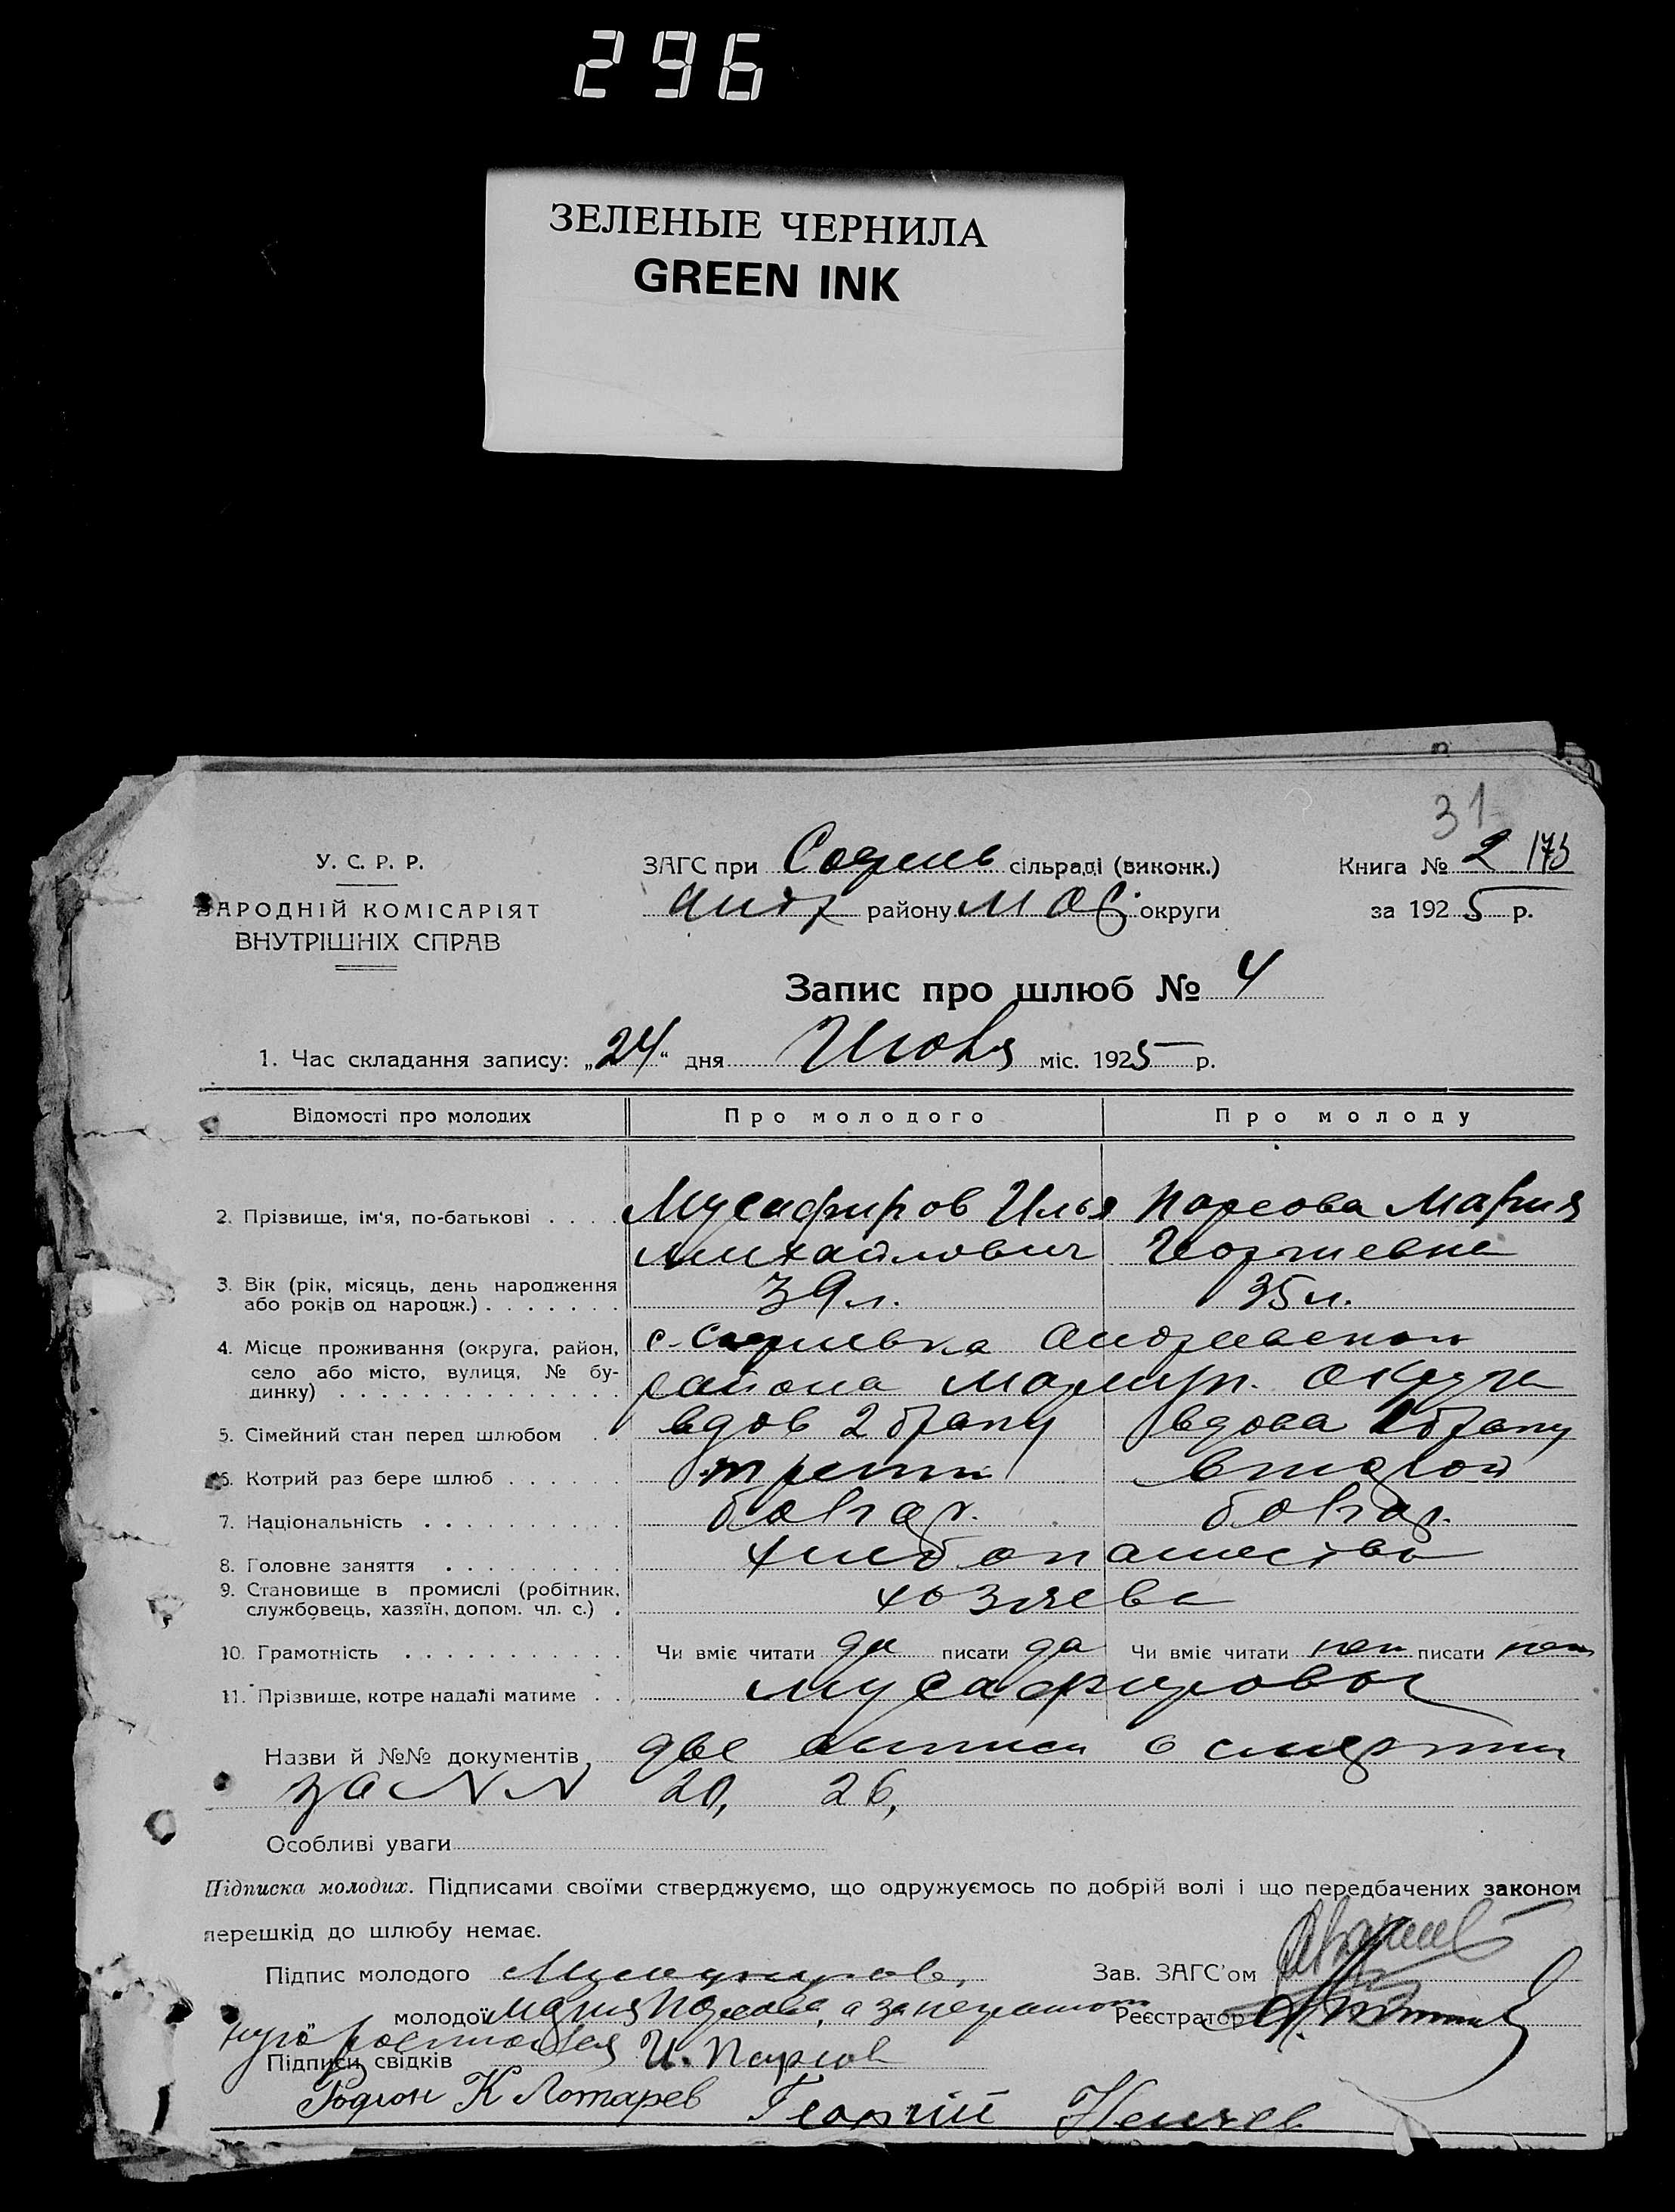 296
ЗЕЛЕНЫЕ ЧЕРНИЛА
GREEN INK
31
У. С. Р. Р.
НАРОДНІЙ КОМІСАРІЯТ
ВНУТРІШНІХ СПРАВ
ЗАГС при Софиев сільраді (виконк.)
Андр району МОс округи
Книга № 2 173
за 1925 р.
Запис про шлюб № 4
1. Час складання запису: „24“ дня Июля міс. 1925 р.
Відомості про молодих Про молодого Про молоду
2. Прізвище, ім'я, по-батькові . . . . Мусафиров Илья Парсова Мария
Михайлович Георгиевна
3. Вік (рік, місяць, день народження
або років од народж.) . . . . . . . 39 л. 35 л.
4. Місце проживання (округа, район,
село або місто, вулиця, № бу-
динку) . . . . . . . . . . . . . .
с. Софиевка Андреевского
района Мариуп. округа
5. Сімейний стан перед шлюбом . вдов 2 браку вдова 1 браку
6. Котрий раз бере шлюб . . . . . . третий второй
7. Національність . . . . . . . . . . болгар. болгар.
8. Головне заняття . . . . . . . . . хлебопашество
9. Становище в промислі (робітник,
службовець, хазяїн, допом. чл. с.) . хозяева
10. Грамотність . . . . . . . . . . . Чи вміє читати да писати да Чи вміє читати нет писати нет
11. Прізвище, котре надалі матиме . . Мусафировы
Назви й №№ документів две выписи о смерти
за NN 20, 26,
Особливі уваги
Підписка молодих. Підписами своїми стверджуємо, що одружуємось по добрій волі і що передбачених законом
перешкід до шлюбу немає.
Підпис молодого Мусафиров, Зав. ЗАГС'ом
молодої Мария Парсова, а за неграмот Реєстратор
ную расписался И. Парсов
Підписи свідків
Родион К Лотарев Георгий Ненчев